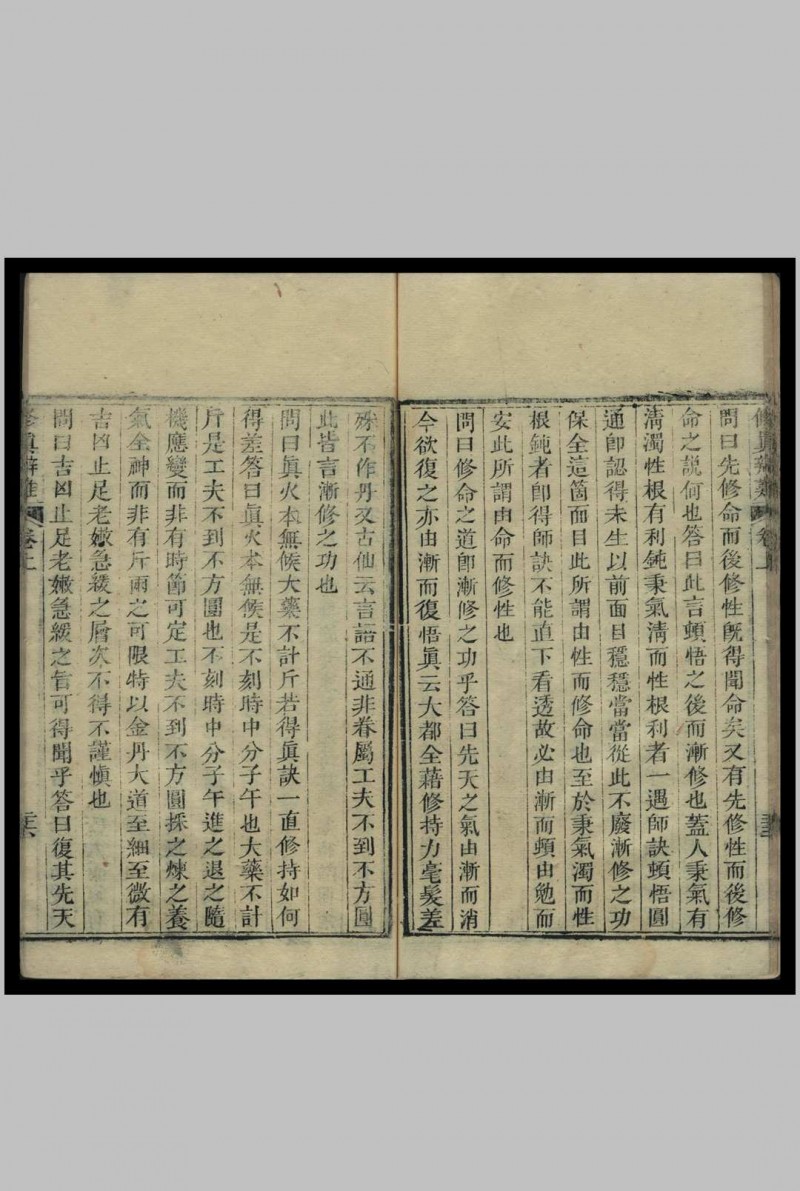 修真辨難 卷上
問曰先修命而後修性旣得聞命矣又有先修性而後修
命之説何也答曰此言頓悟之後而漸修也蓋人秉氣有
淸濁性根有利鈍秉氣淸而性根利者一遇師訣頓悟圓
通卽認得未生以前面目穩穩當當從此不廢漸修之功
保全這箇面目此所謂由性而修命也至於秉氣濁而性
根鈍者卽得師訣不能直下看透故必由漸而頓由勉而
安此所謂由命而修性也
問曰修命之道卽漸修之功乎答曰先天之氣由漸而消
今欲復之亦由漸而復悟眞云大都全藉修持力毫髮差
殊不作丹又古仙云言語不通非眷屬工夫不到不方圓
此皆言漸修之功也
問曰眞火本無候大藥不計斤若得眞訣一直修持如何
得差答曰眞火本無候是不刻時中分子午也大藥不計
斤是工夫不到不方圓也不刻時中分子午進之退之隨
機應變而非有時節可定工夫不到不方圓採之煉之養
氣全神而非有斤兩之可限特以金丹大道至細至微有
吉凶止足老嫩急緩之層次不得不謹愼也
問曰吉凶止足老嫩急緩之旨可得聞乎答曰復其先天
修眞辨難 卷上